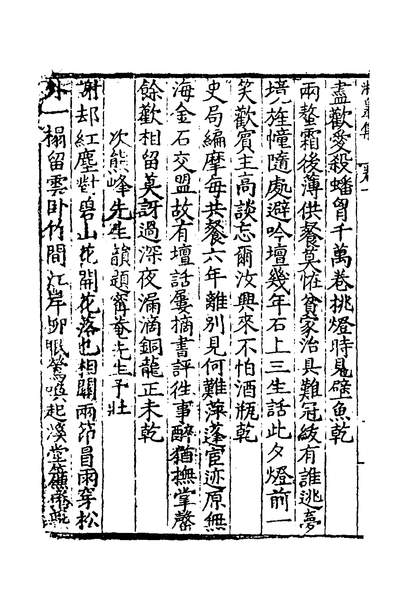 盡歡愛殺蟠胷千萬卷挑燈時見蠧魚乾
兩螯霜後薄供餐莫怪貧家治具難冠紱有誰逃夢
境旌幢隨處避吟壇幾年石上三生話此夕燈前一
笑歡賓主高談忘爾汝興來不怕酒瓶乾
史局編摩每共餐六年離別見何難萍蓬宦迹原無
海金石交盟故有壇話屢摘書評徃事醉猶撫掌罄
餘歡相留莫訝過深夜漏滴銅龍正未乾
次熊峰先生韻題甯菴先生予壯
謝却紅塵對碧山花開花落也相關兩笻冒雨穿松
外一榻留雲卧竹間江岸卯眠鶯喚起溪堂